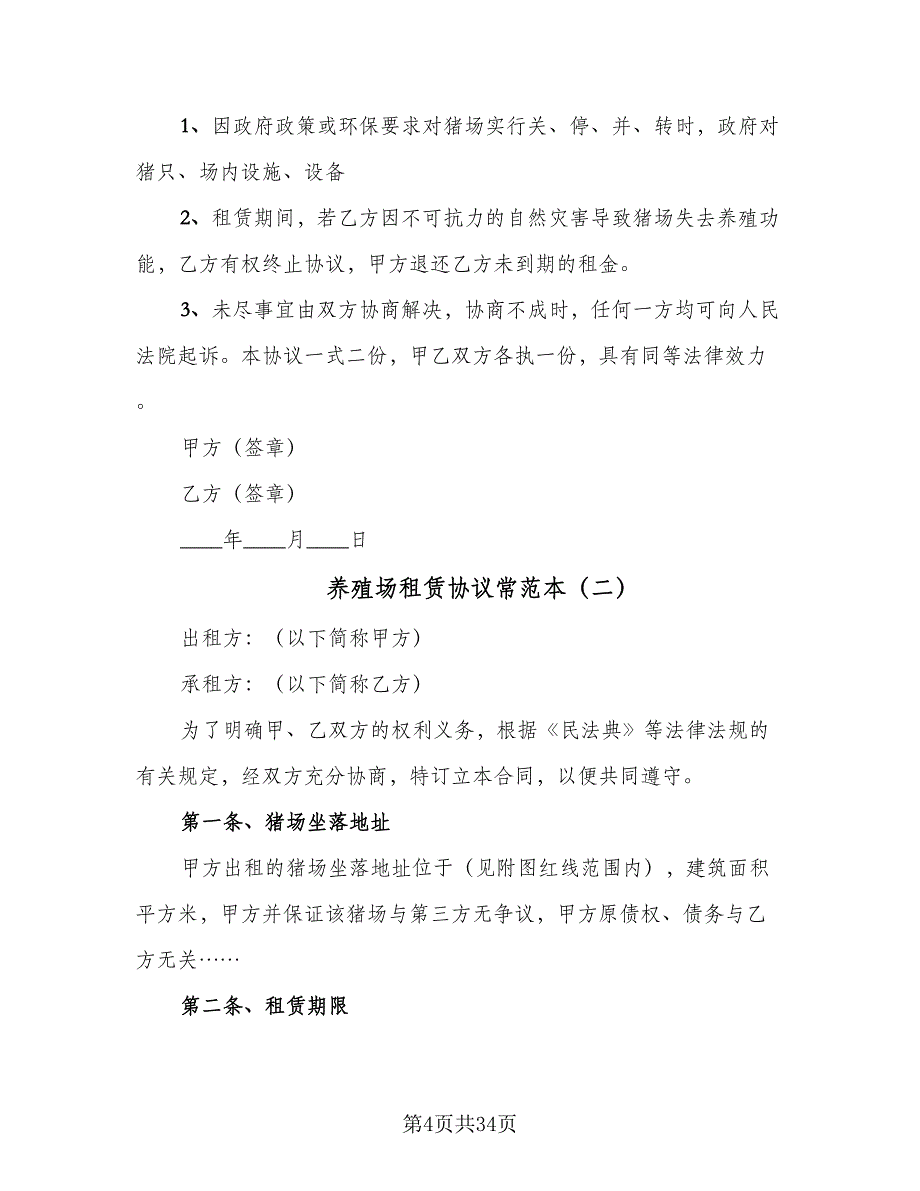 1、因政府政策或环保要求对猪场实行关、停、并、转时，政府对
猪只、场内设施、设备
2、租赁期间，若乙方因不可抗力的自然灾害导致猪场失去养殖功
能，乙方有权终止协议，甲方退还乙方未到期的租金。
3、未尽事宜由双方协商解决，协商不成时，任何一方均可向人民
法院起诉。本协议一式二份，甲乙双方各执一份，具有同等法律效力
。
甲方（签章）
乙方（签章）
____年____月____日
养殖场租赁协议常范本（二）
出租方：（以下简称甲方）
承租方：（以下简称乙方）
为了明确甲、乙双方的权利义务，根据《民法典》等法律法规的
有关规定，经双方充分协商，特订立本合同，以便共同遵守。
第一条、猪场坐落地址
甲方出租的猪场坐落地址位于（见附图红线范围内），建筑面积
平方米，甲方并保证该猪场与第三方无争议，甲方原债权、债务与乙
方无关……
第二条、租赁期限
第4页共34页